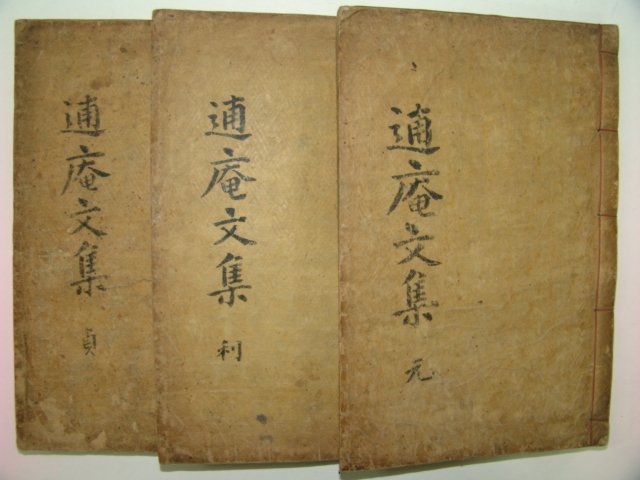 逋庵文集
元
逋庵文集
利
逋庵文集
貞